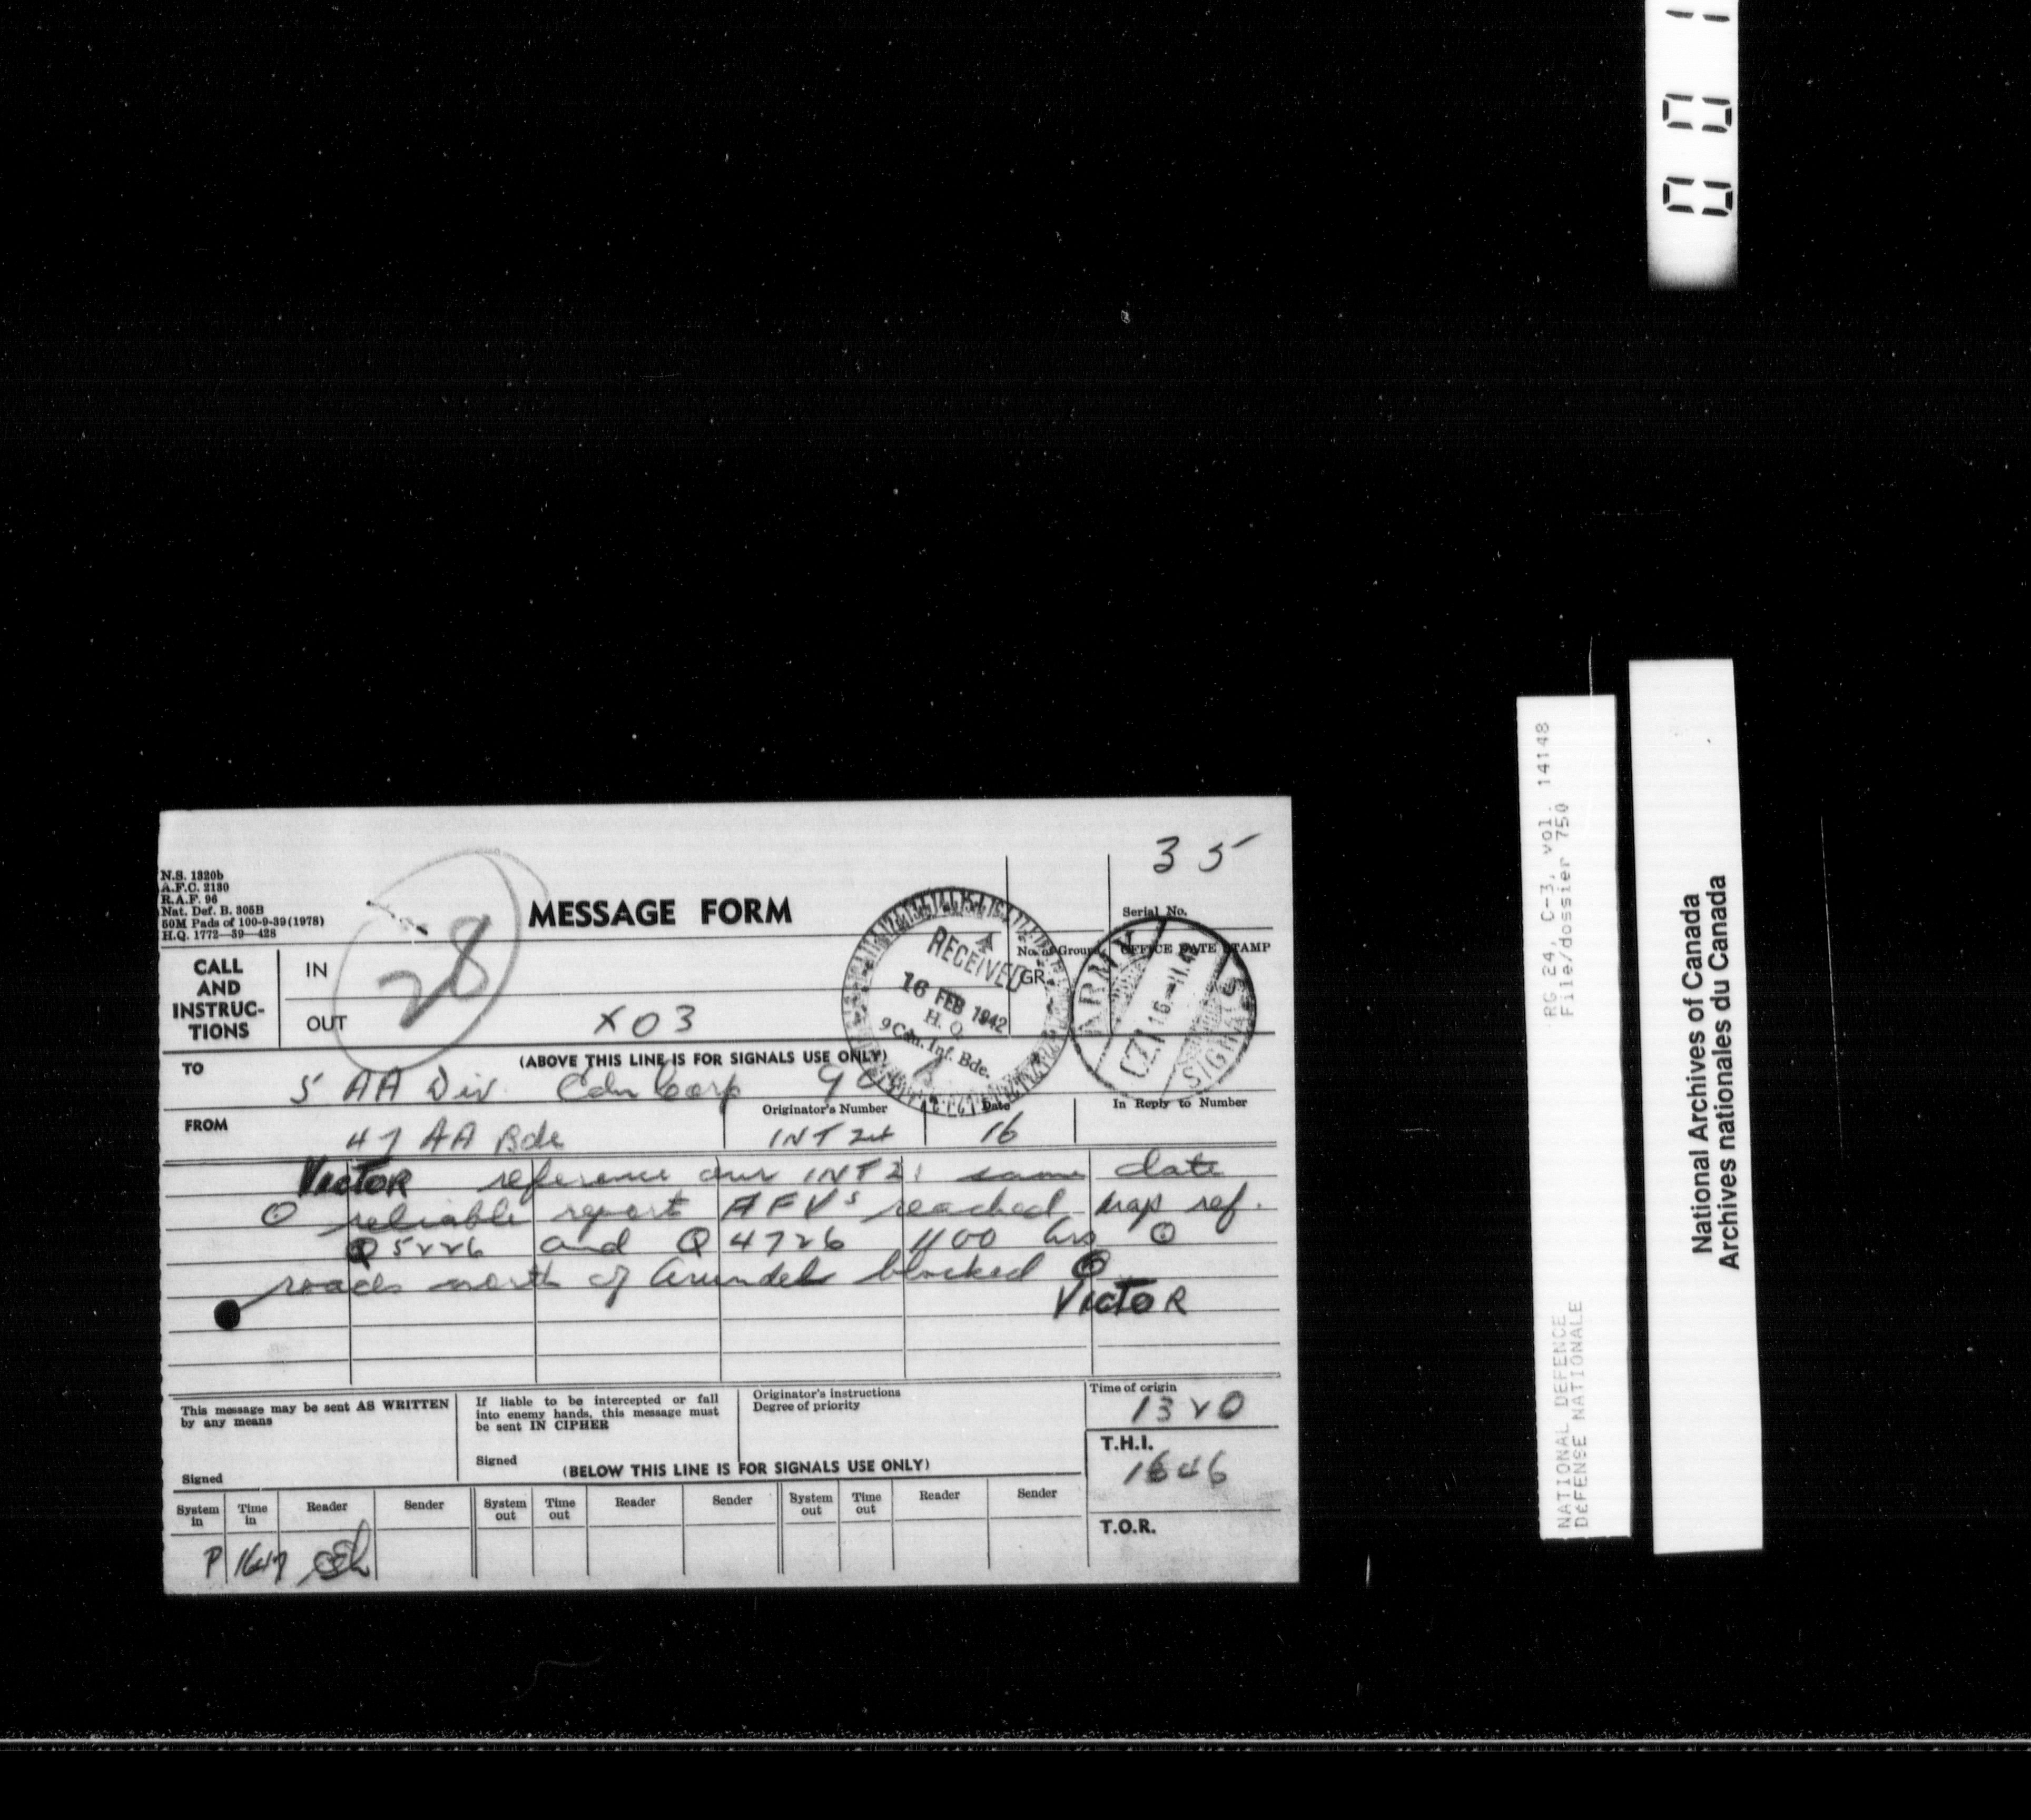 001
35
N.S. 1320b
A.F.C. 2130
R.A.F. 96
Nat. Def. B. 305B
50M Pads of 100-9-39 (1978)
H.Q. 1772—39—428
28
MESSAGE FORM
Serial No.
No. of Groups
GR
OFFICE DATE STAMP
RECEIVED
16 FEB 1942
H. Q.
9 Cdn. Inf. Bde.
ARMY
SIGNALS
CALL AND INSTRUC-TIONS
IN
OUT
X03
(ABOVE THIS LINE IS FOR SIGNALS USE ONLY)
TO
5 AA Div Cdn Corp
Originator's Number
Date
In Reply to Number
FROM
47 AA Bde
INT 24
16
VICTOR reference our INT 21 same date
reliable report AFVs reached map ref.
Q 5226 and Q 4726 1100 hrs
roads north of Arundel blocked
VICTOR
This message may be sent AS WRITTEN
by any means
Signed
If liable to be intercepted or fall
into enemy hands, this message must
be sent IN CIPHER
Signed
Originator's instructions
Degree of priority
Time of origin
1320
T.H.I.
1646
T.O.R.
(BELOW THIS LINE IS FOR SIGNALS USE ONLY)
System in Time in Reader Sender System out Time out Reader Sender System out Time out Reader Sender
P 1647
RG 24, C-3, vol. 14148
File/dossier 750
NATIONAL DEFENCE
DÉFENSE NATIONALE
National Archives of Canada
Archives nationales du Canada